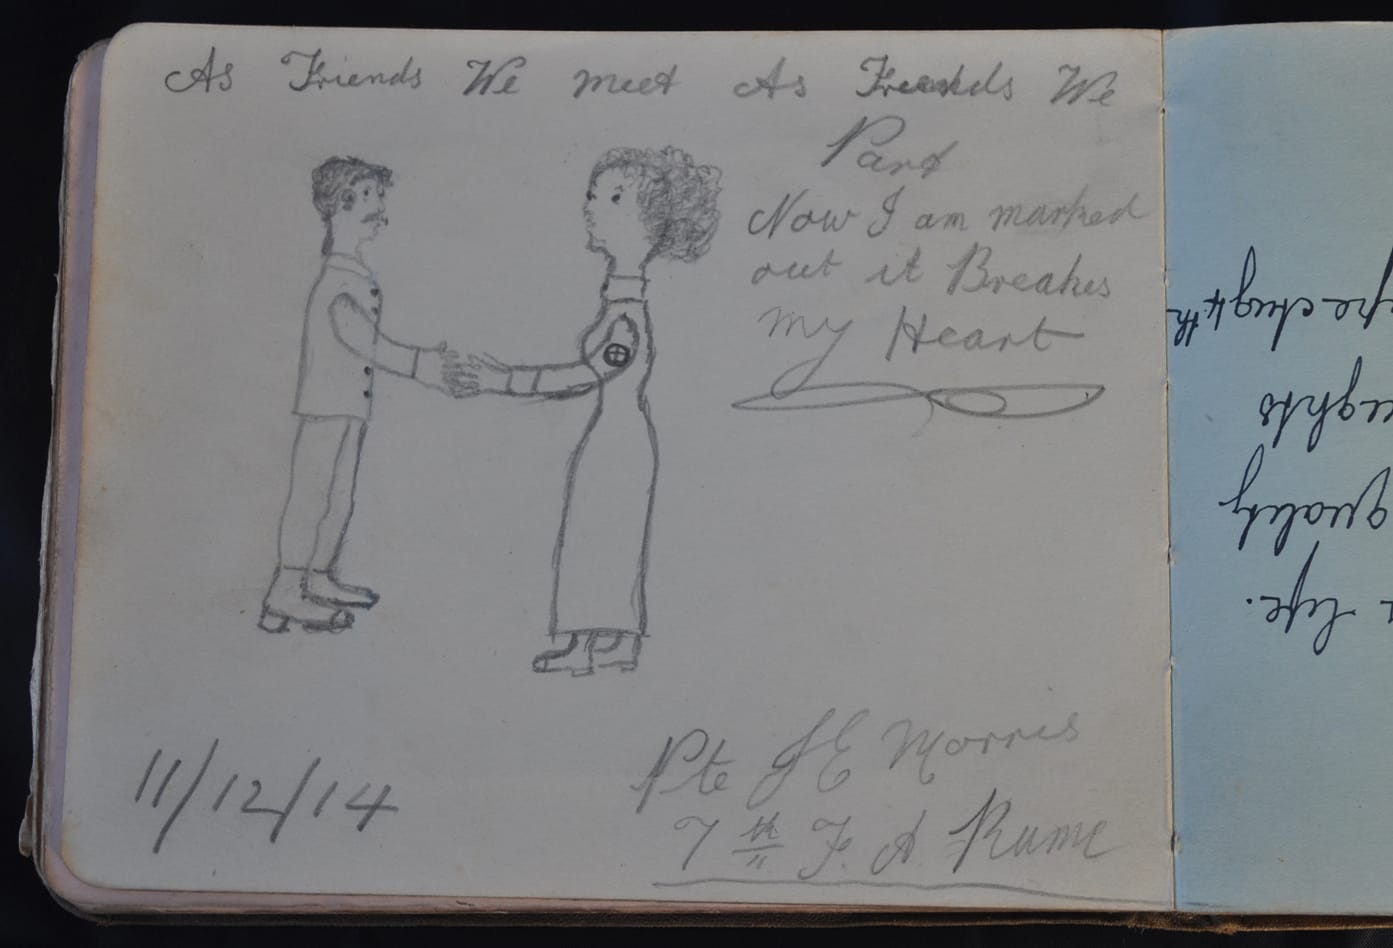 As Friends We meet As Freinds We
Part
Now I am marked
out it Breakes
my Heart
11/12/14
Pte J E Morris
7th F. A. Ramc
quality
life.